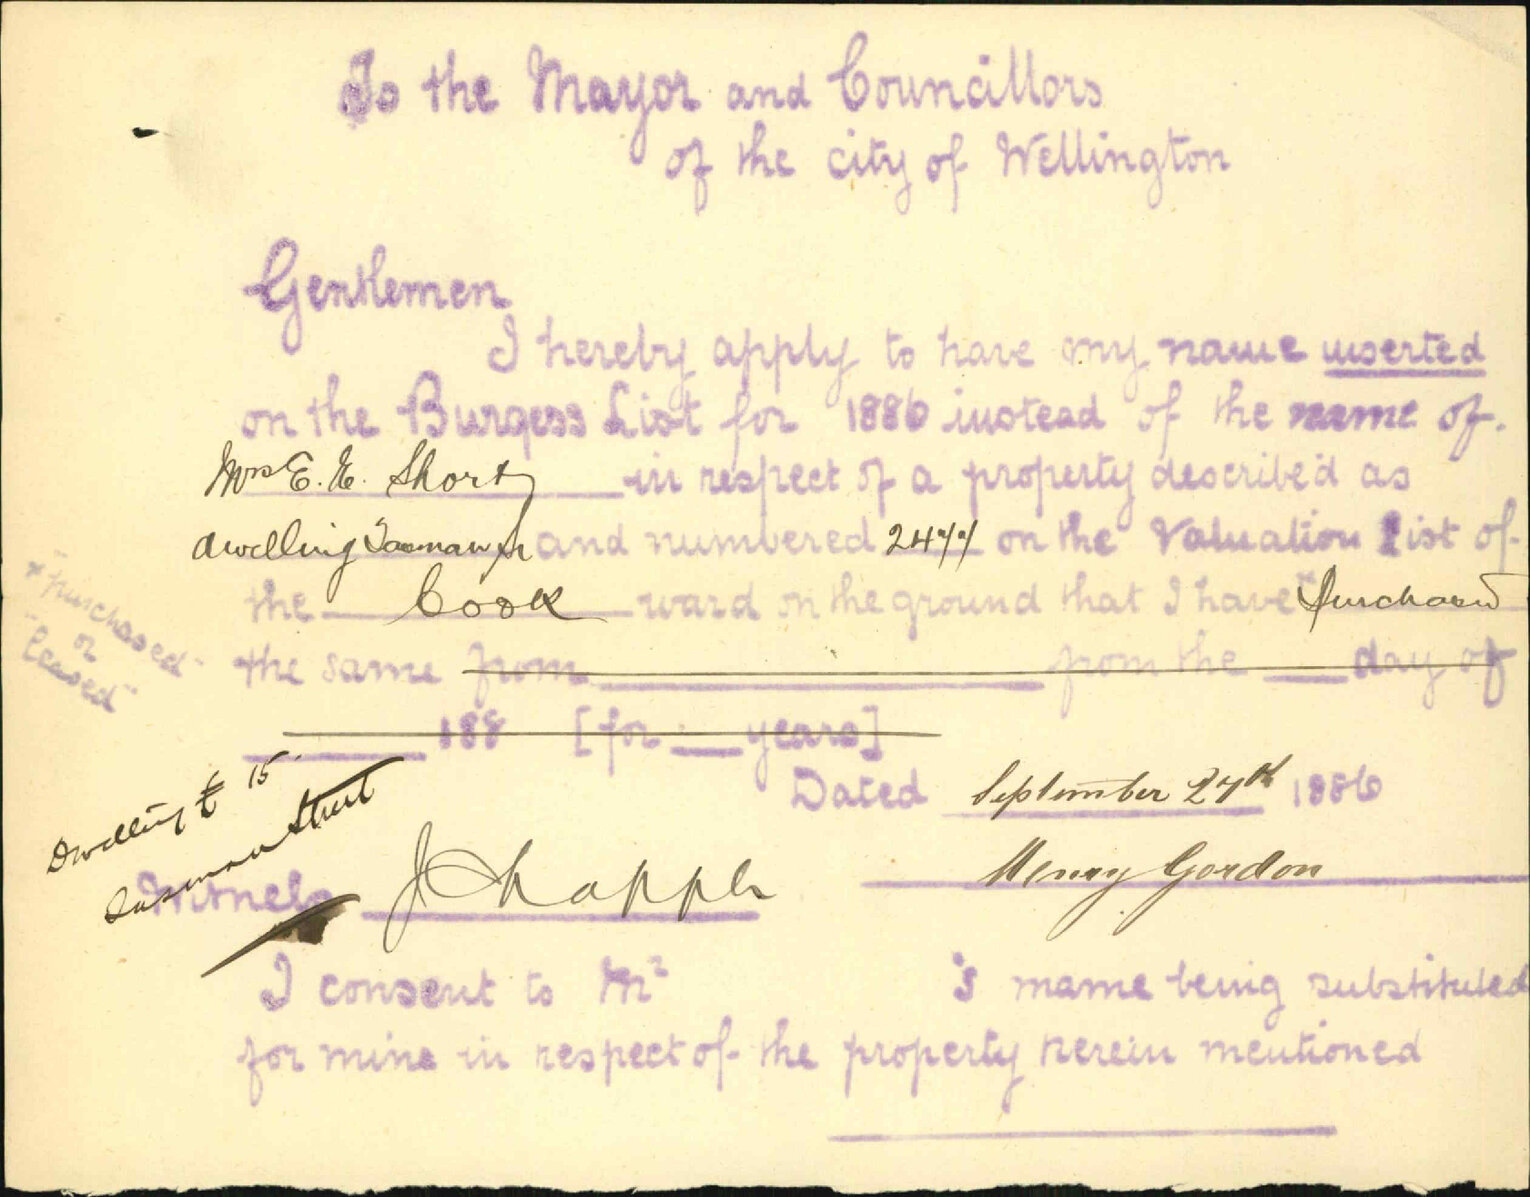 To the Mayor and Councillors
of the city of Wellington
Gentlemen
I hereby apply to have my name inserted
on the Burgess List for 1886 instead of the name of
Mrs E. E. Short in respect of a property described as
dwelling Tasman St and numbered 2477 on the Valuation List of
the Cook ward on the ground that I have "Purchased
the same from from the day of
188 [for years]
x "purchased"
or
"leased"
Dated September 27th 1886
Dwelling £ 15
Tasman Street
Henry Gordon
Witness J Chapple
I consent to Mr 's name being substituted
for mine in respect of the property herein mentioned